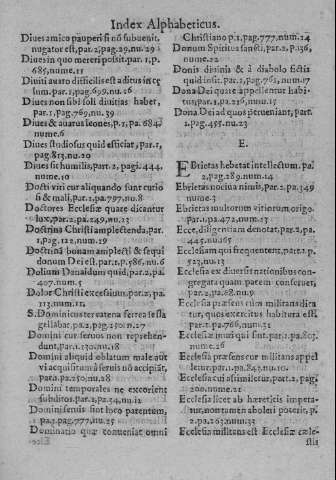 Index Alphabeticus.
Diues amico pauperi si nō subuenit,
nugator est, par.2, pag.29, nu.29
Diues in quo mereri possit. par.1, p.
685, nume.11
Diuiti auaro difficilis est aditus in cę
lum. par.1, pag.699, nu.16
Diues non sibi soli diuitias habet,
par.1, pag.769, nu.39
Diues & auarus leones, p.1, pa.684,
nume.6
Diues studiosus quid efficiat, par.1,
pag.813. nu.20
Diues sit humilis, part.2, pagi.444,
nume.10
Docti viri cur aliquando sunt curio
si & mali, par.1. pa.797, nu.8
Doctores Ecclesiæ quare dicantur
lux, par.2, pa.249, nu.23
Doctrina Christi amplectenda, par.
1, pag.122, num.19
Doctrinā bonam amplecti & sequi
donum Dei est. par.1, p.586, nu.6
Dolium Danaidum quid, par.2, pa.
407. num.5
Dolor Christi excessiuus, par.2, pa.
113, num.11
S. Dominicus ter catena ferrea se fla
gellabat. pa.2, pag.250. n.27
Domini cur seruos non reprehen-
dunt, par.1. 130, nu.18
Domini aliquid oblatum male aut
vi acquisitum à seruis nō accipiāt,
par. 2, pa.250, nu.28
Domini temporales ne excorient
subditos. par.2, pa.34, nu.12
Domini seruis sint loco parentum,
pa.1, pag.777, nu.25
Dominatio quæ conueniat omni
Christiano p.1, pag.777, num.24
Donum Spiritus sancti, par.2, p.136,
nume.22
Donis diuinis & à diabolo fictis
quid insit. par.1, pag.761, num.17
Dona Dei quare appellentur habi-
tus, par.1, pa.216, nnu.15
Dona Dei ad quos perueniant, part.
1, pag.455. nu.23
E.
EBrietas hebetat intellectum. pa.
2, pag.289. num.14
Ebrietas nociua nimis, par.2, pa.349
nume.3
Ebrietas multorum vitiorum origo.
par.1, pa.472, num.13
Ecce, diligentiam denotat, par.2, pa.
445. nu.165
Ecclesiam qui frequentent, part.1, p.
522, nu.13
Ecclesia ex diuersis nationibus con-
gregata quam pacem conseruet,
par.2, pa.68. nu.9
Ecclesia præsens cùm militans dica
tur, quæ exhortationes vtitur, est.
par.1. pa.766, num.31
Ecclesiæ muri qui sint. par.1, pa.803.
nume.26
Ecclesia præsens cur militans appel
letur, par.1. pa.843, nu.10
Ecclesia cui assimiletur, part.2, pag.
200, nume.21
Ecclesia licet ab hæreticis impeta-
tur, non tamen aboleri poterit, p.
2, pa.263, nu.11
Ecclesia militans est Ecclesiæ cæle-
stis